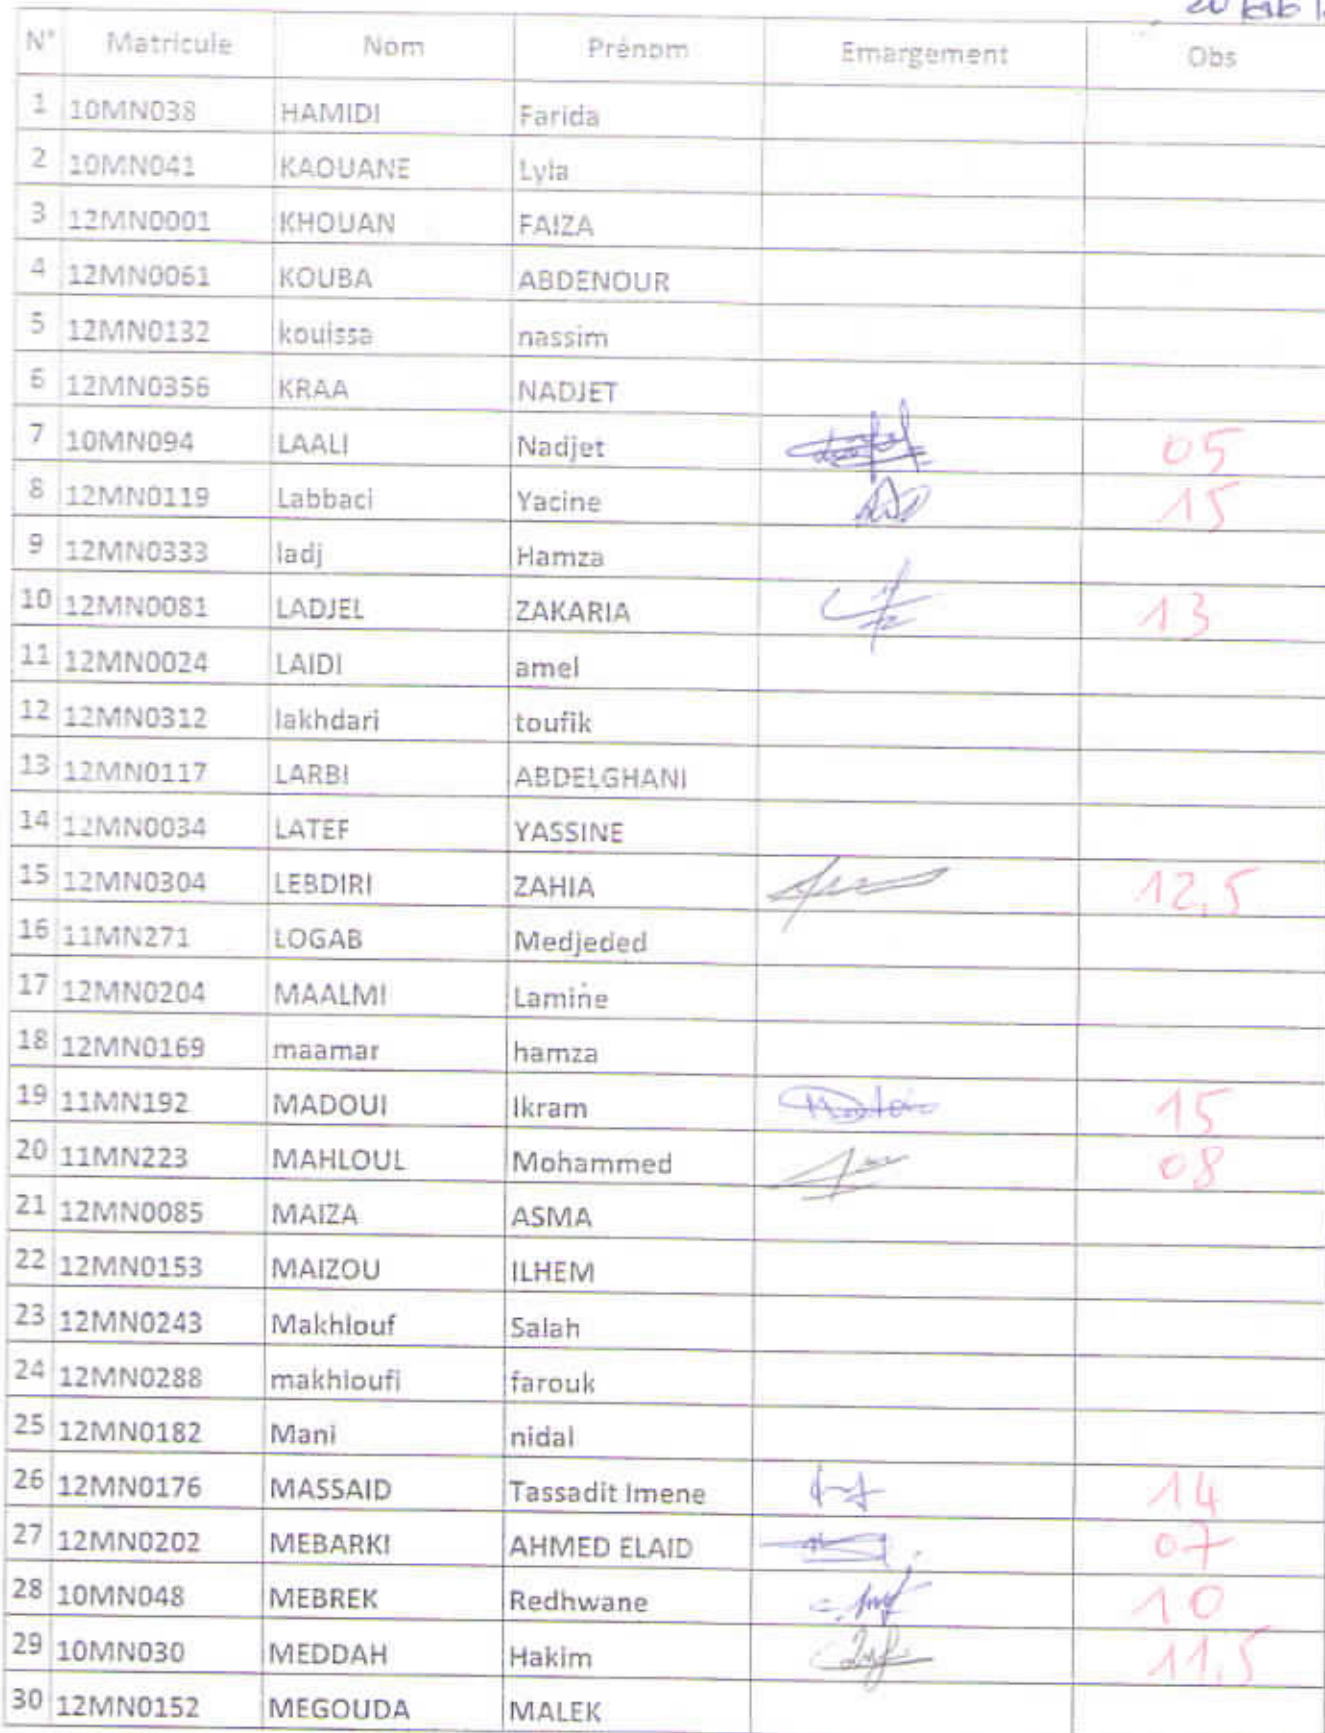 N° Matricule Nom Prénom Emargement Obs
1 10MN038 HAMIDI Farida
2 10MN041 KAOUANE Lyla
3 12MN0001 KHOUAN FAIZA
4 12MN0061 KOUBA ABDENOUR
5 12MN0132 kouissa nassim
6 12MN0356 KRAA NADJET
7 10MN094 LAALI Nadjet 05
8 12MN0119 Labbaci Yacine 15
9 12MN0333 ladj Hamza
10 12MN0081 LADJEL ZAKARIA 13
11 12MN0024 LAIDI amel
12 12MN0312 lakhdari toufik
13 12MN0117 LARBI ABDELGHANI
14 12MN0034 LATEF YASSINE
15 12MN0304 LEBDIRI ZAHIA 12,5
16 11MN271 LOGAB Medjeded
17 12MN0204 MAALMI Lamine
18 12MN0169 maamar hamza
19 11MN192 MADOUI Ikram 15
20 11MN223 MAHLOUL Mohammed 08
21 12MN0085 MAIZA ASMA
22 12MN0153 MAIZOU ILHEM
23 12MN0243 Makhlouf Salah
24 12MN0288 makhloufi farouk
25 12MN0182 Mani nidal
26 12MN0176 MASSAID Tassadit Imene 14
27 12MN0202 MEBARKI AHMED ELAID 07
28 10MN048 MEBREK Redhwane 10
29 10MN030 MEDDAH Hakim 11,5
30 12MN0152 MEGOUDA MALEK